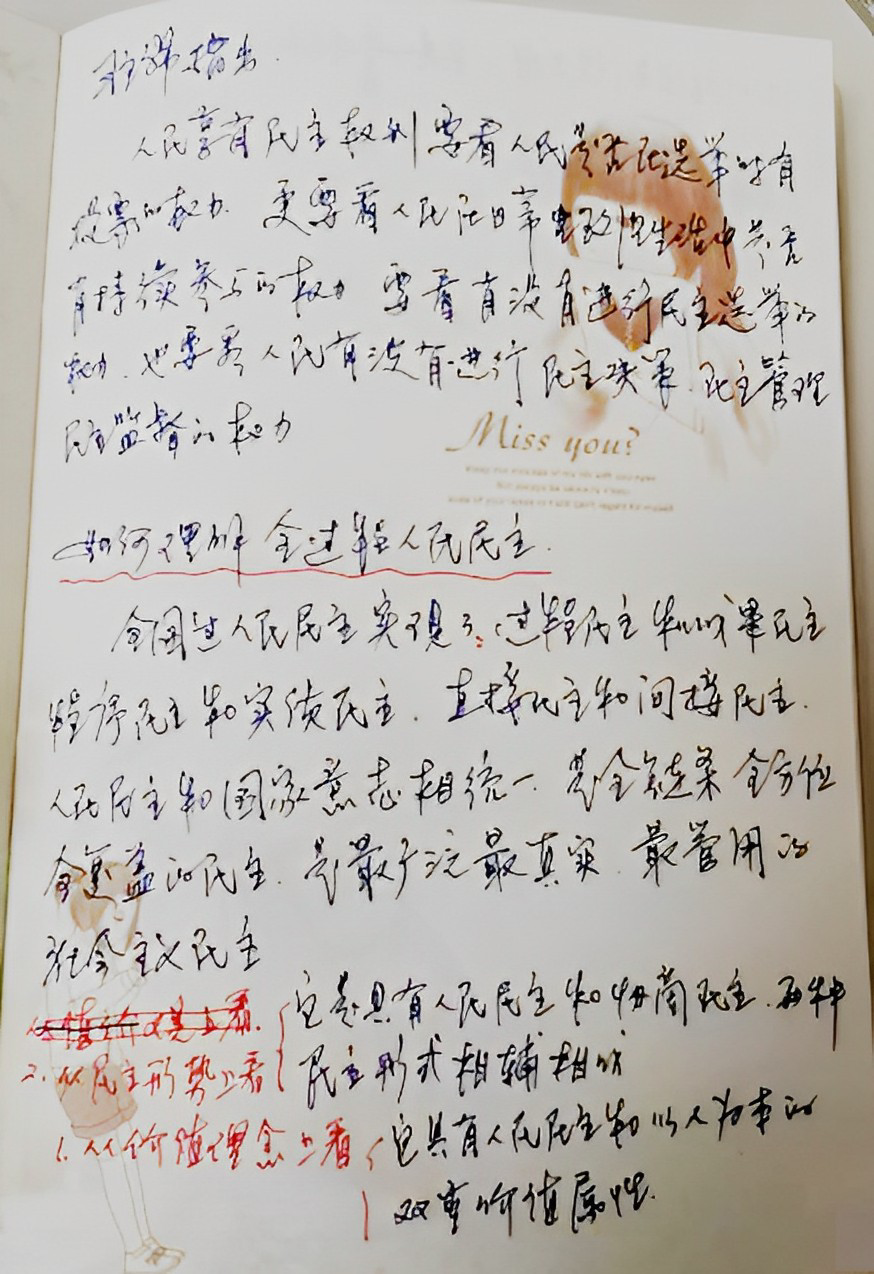 指出.
人民享有民主权利 要看人民是否在选举时有
投票的权力. 更要看人民在日常政治性生活中是否
有持续参与的权力 要看有没有进行民主选举的
权力. 也要看人民有没有进行民主决策. 民主管理
民主监督的权力
Miss you?
如何理解 全过程人民民主.
全国过人民民主实现了: 过程民主和成果民主
程序民主和实质民主. 直接民主和间接民主.
人民民主和国家意志相统一. 是全链条 全方位
全覆盖的民主. 是最广泛最真实 最管用的
社会主义民主
它是具有人民民主和协商民主. 两种
2. 从民主形势上看 民主形式相辅相成
1. 从价值理念上看 它具有人民民主和以人为本的
双重价值属性.